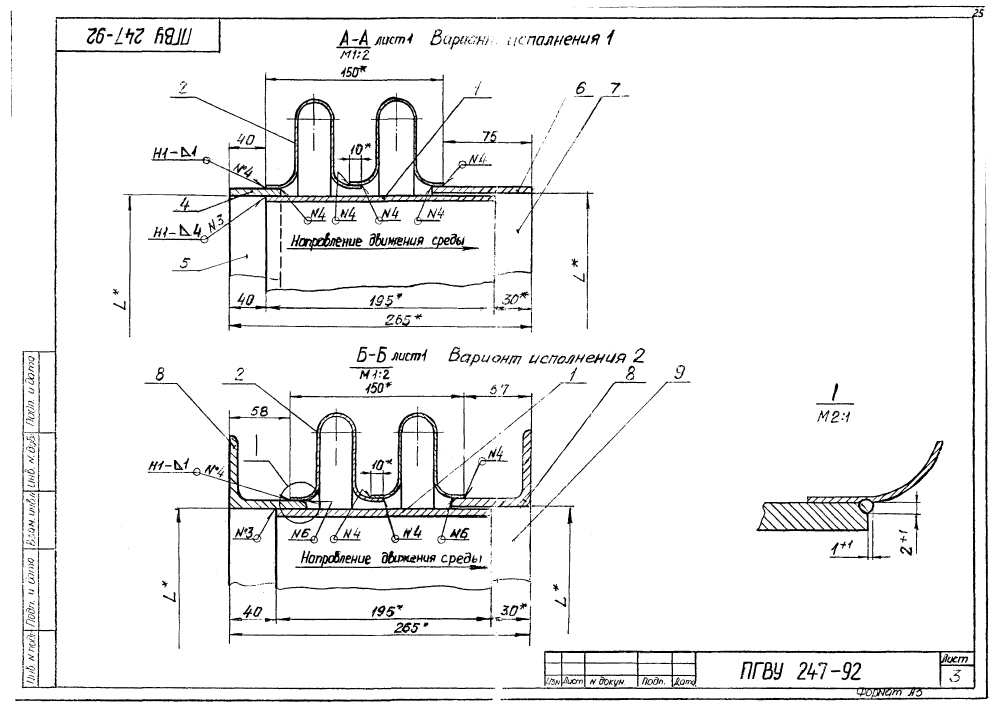 25
ПГВУ 247-92
А-А лист1 Вариант исполнения 1
М1:2
150*
2
1
6
7
40
10*
75
Н1-Δ1
№4
N4
4
N4
N4
N4
N4
Н1-Δ4
N3
Направление движения среды
5
L*
L*
40
195*
30*
265*
Б-Б лист1 Вариант исполнения 2
М1:2
150*
8
2
1
8
9
58
57
I
М2:1
I
10*
Н1-Δ1
№4
N4
№3
N6
N4
N4
N6
Направление движения среды
1+1
2+1
L*
L*
40
195*
30*
265*
Инв. N подл.
Подп. и дата
Взам. инв. N
Инв. N дубл.
Подп. и дата
Изм
Лист
N докум.
Подп.
Дата
ПГВУ 247-92
Лист
3
Формат А3